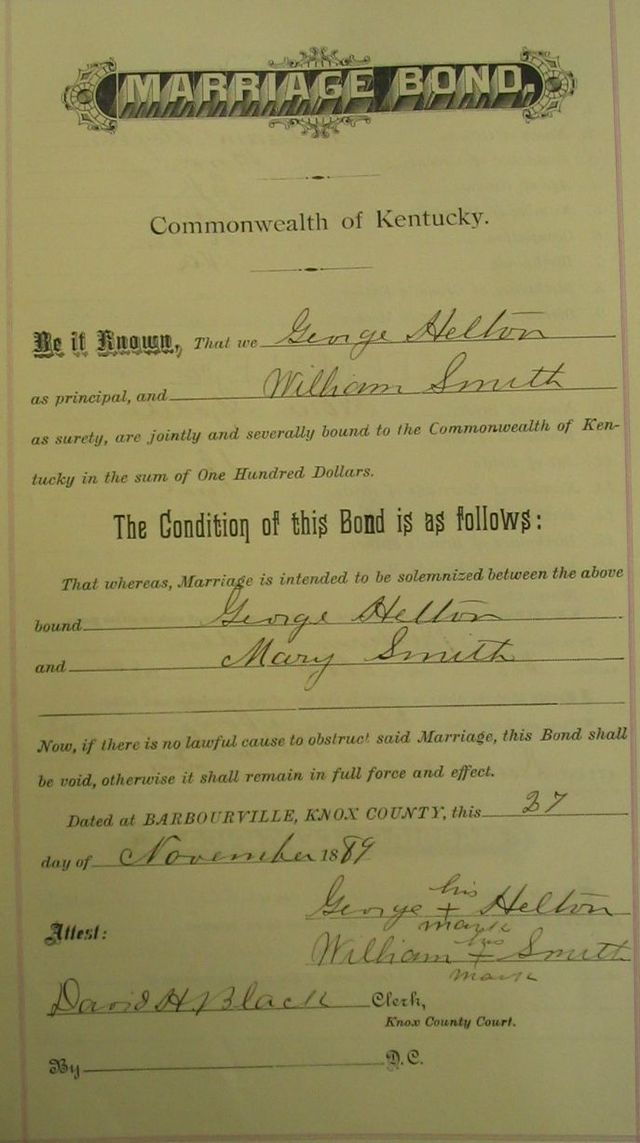 MARRIAGE BOND.
Commonwealth of Kentucky.
Be it Known, That we George Helton
as principal, and William Smith
as surety, are jointly and severally bound to the Commonwealth of Ken-
tucky in the sum of One Hundred Dollars.
The Condition of this Bond is as follows:
That whereas, Marriage is intended to be solemnized between the above
bound George Helton
and Mary Smith
Now, if there is no lawful cause to obstruct said Marriage, this Bond shall
be void, otherwise it shall remain in full force and effect.
Dated at BARBOURVILLE, KNOX COUNTY, this 27
day of November 1889
his
George + Helton
mark
Attest:
his
William + Smith
mark
David H. Black Clerk,
Knox County Court.
By D.C.